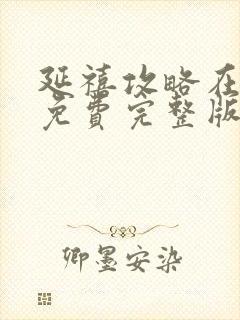 延禧攻略在
免費完整版
卿墨安染